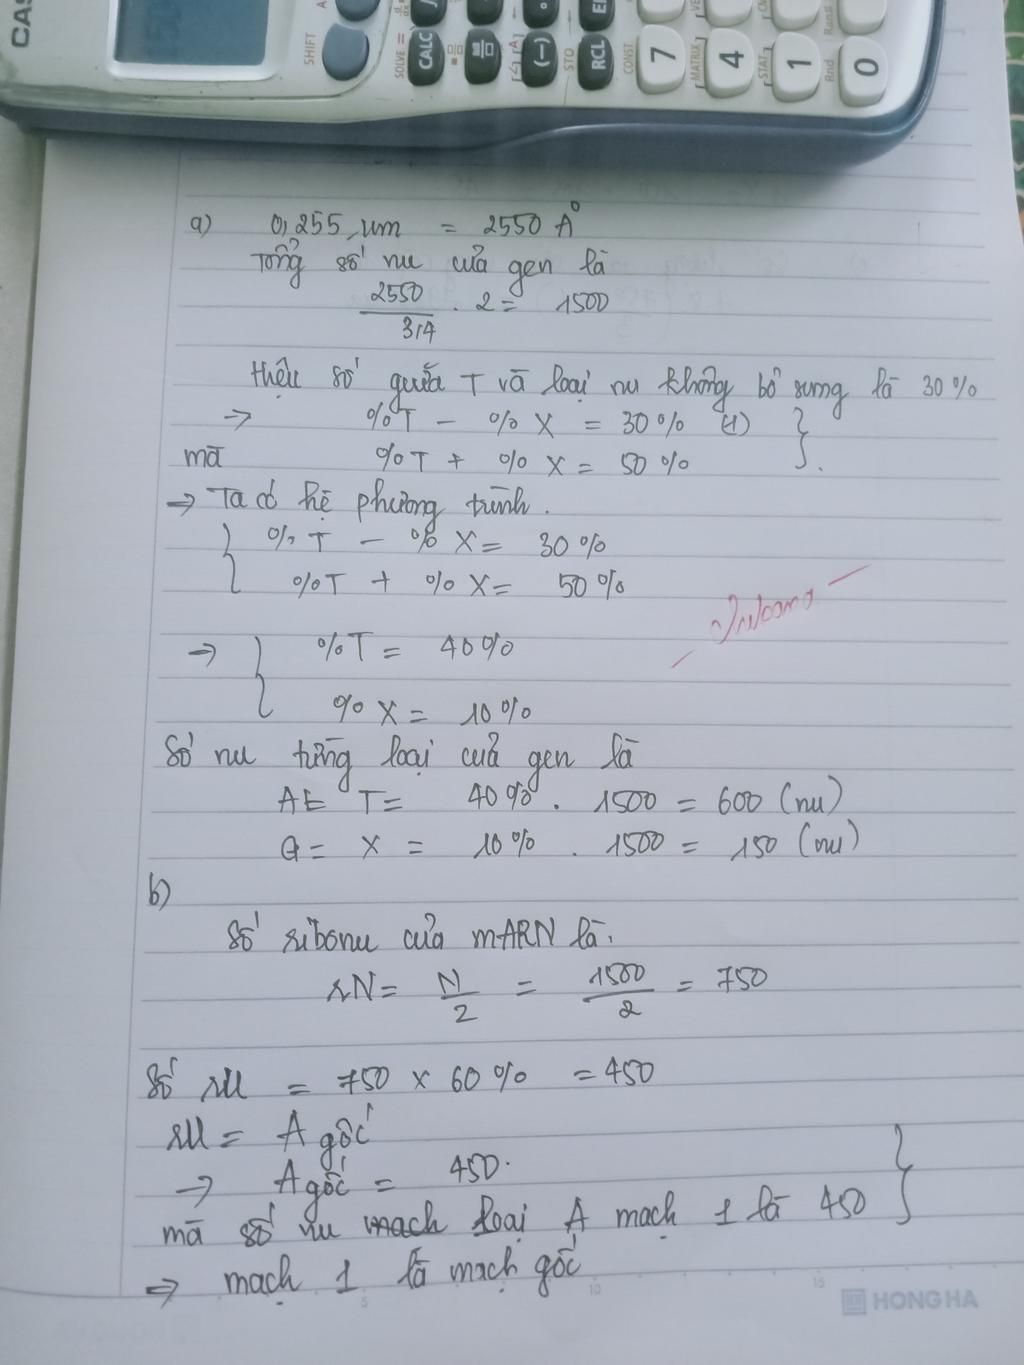 CAS
SHIFT
A
SOLVE =
CALC
(-)
STO
RCL
CONST
7
[MATRIX]
4
[STAT]
1
Rnd
0
a) 0,255 µm = 2550 A°
Tổng số nu của gen là
2550/3,4 . 2 = 1500
Hiệu số giữa T và loại nu không bổ sung là 30%
=> %T - %X = 30% (1) }
mà %T + %X = 50%
=> Ta có hệ phương trình.
{ %T - %X = 30%
%T + %X = 50%
=> { %T = 40%
%X = 10%
Số nu từng loại của gen là
A = T = 40% . 1500 = 600 (nu)
G = X = 10% . 1500 = 150 (nu)
b)
Số ribonu của mARN là.
rN = N/2 = 1500/2 = 750
Số rU = 750 x 60% = 450
rU = A gốc
=> A gốc = 450.
mà số nu loại A mạch 1 là 450 }
=> mạch 1 là mạch gốc
5 10 15
HONG HA